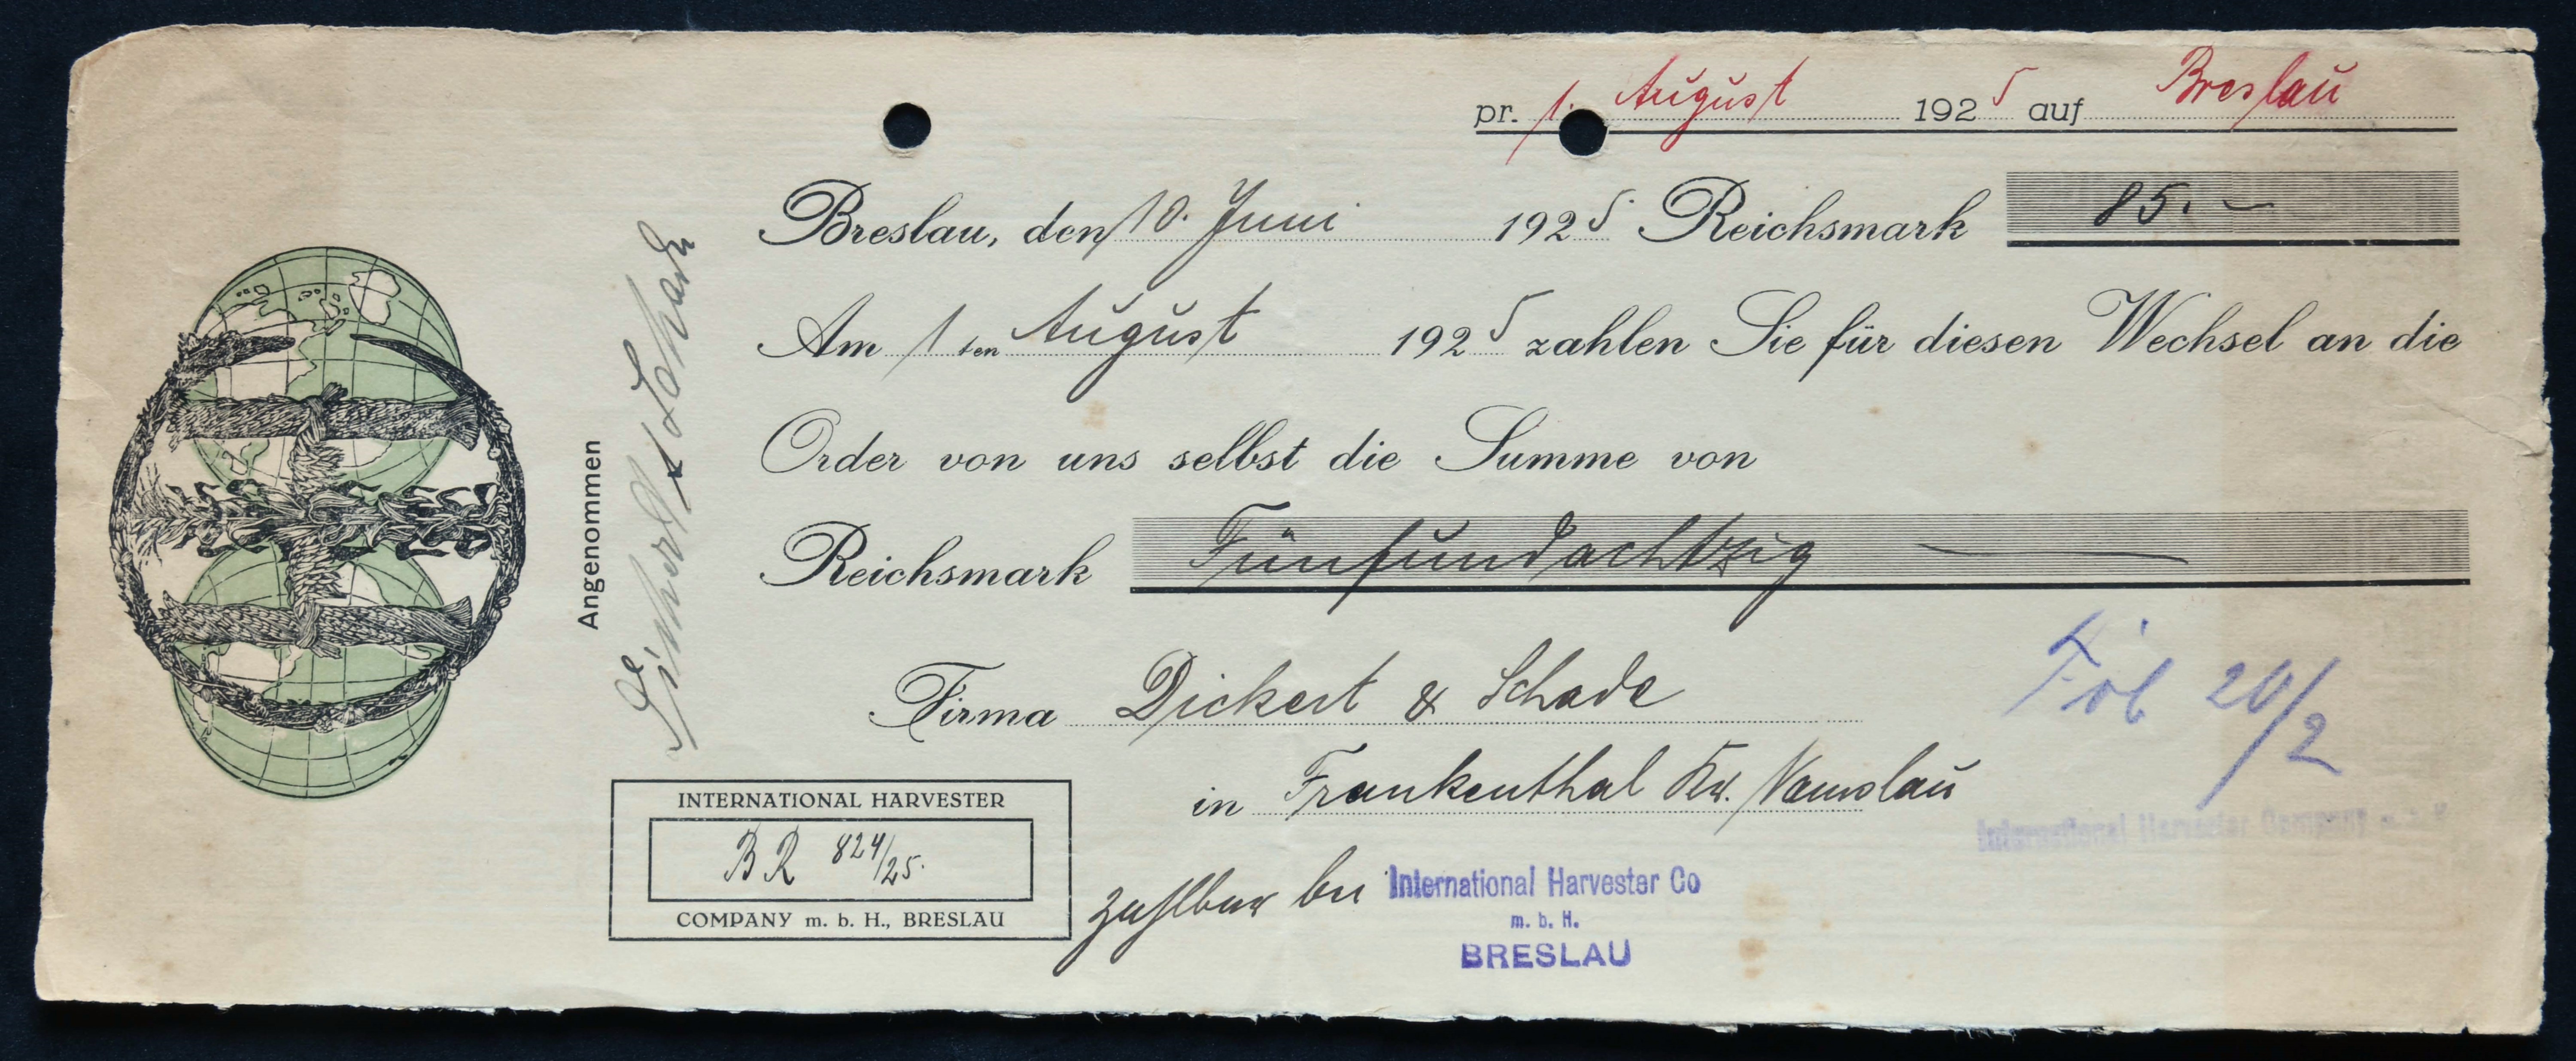 pr. 1. August 1925 auf Breslau
Breslau, den 10. Juni 1925 Reichsmark 85.—
Am 1 ten August 1925 zahlen Sie für diesen Wechsel an die
Order von uns selbst die Summe von
Reichsmark Fünfundachtzig —
Firma Dickert & Schade
in Frankenthal Kr. Namslau
zahlbar bei International Harvester Co
m. b. H.
BRESLAU
Angenommen
Dickert & Schade
INTERNATIONAL HARVESTER
BR 824/25.
COMPANY m. b. H., BRESLAU
20/2
International Harvester Company m. b. H.